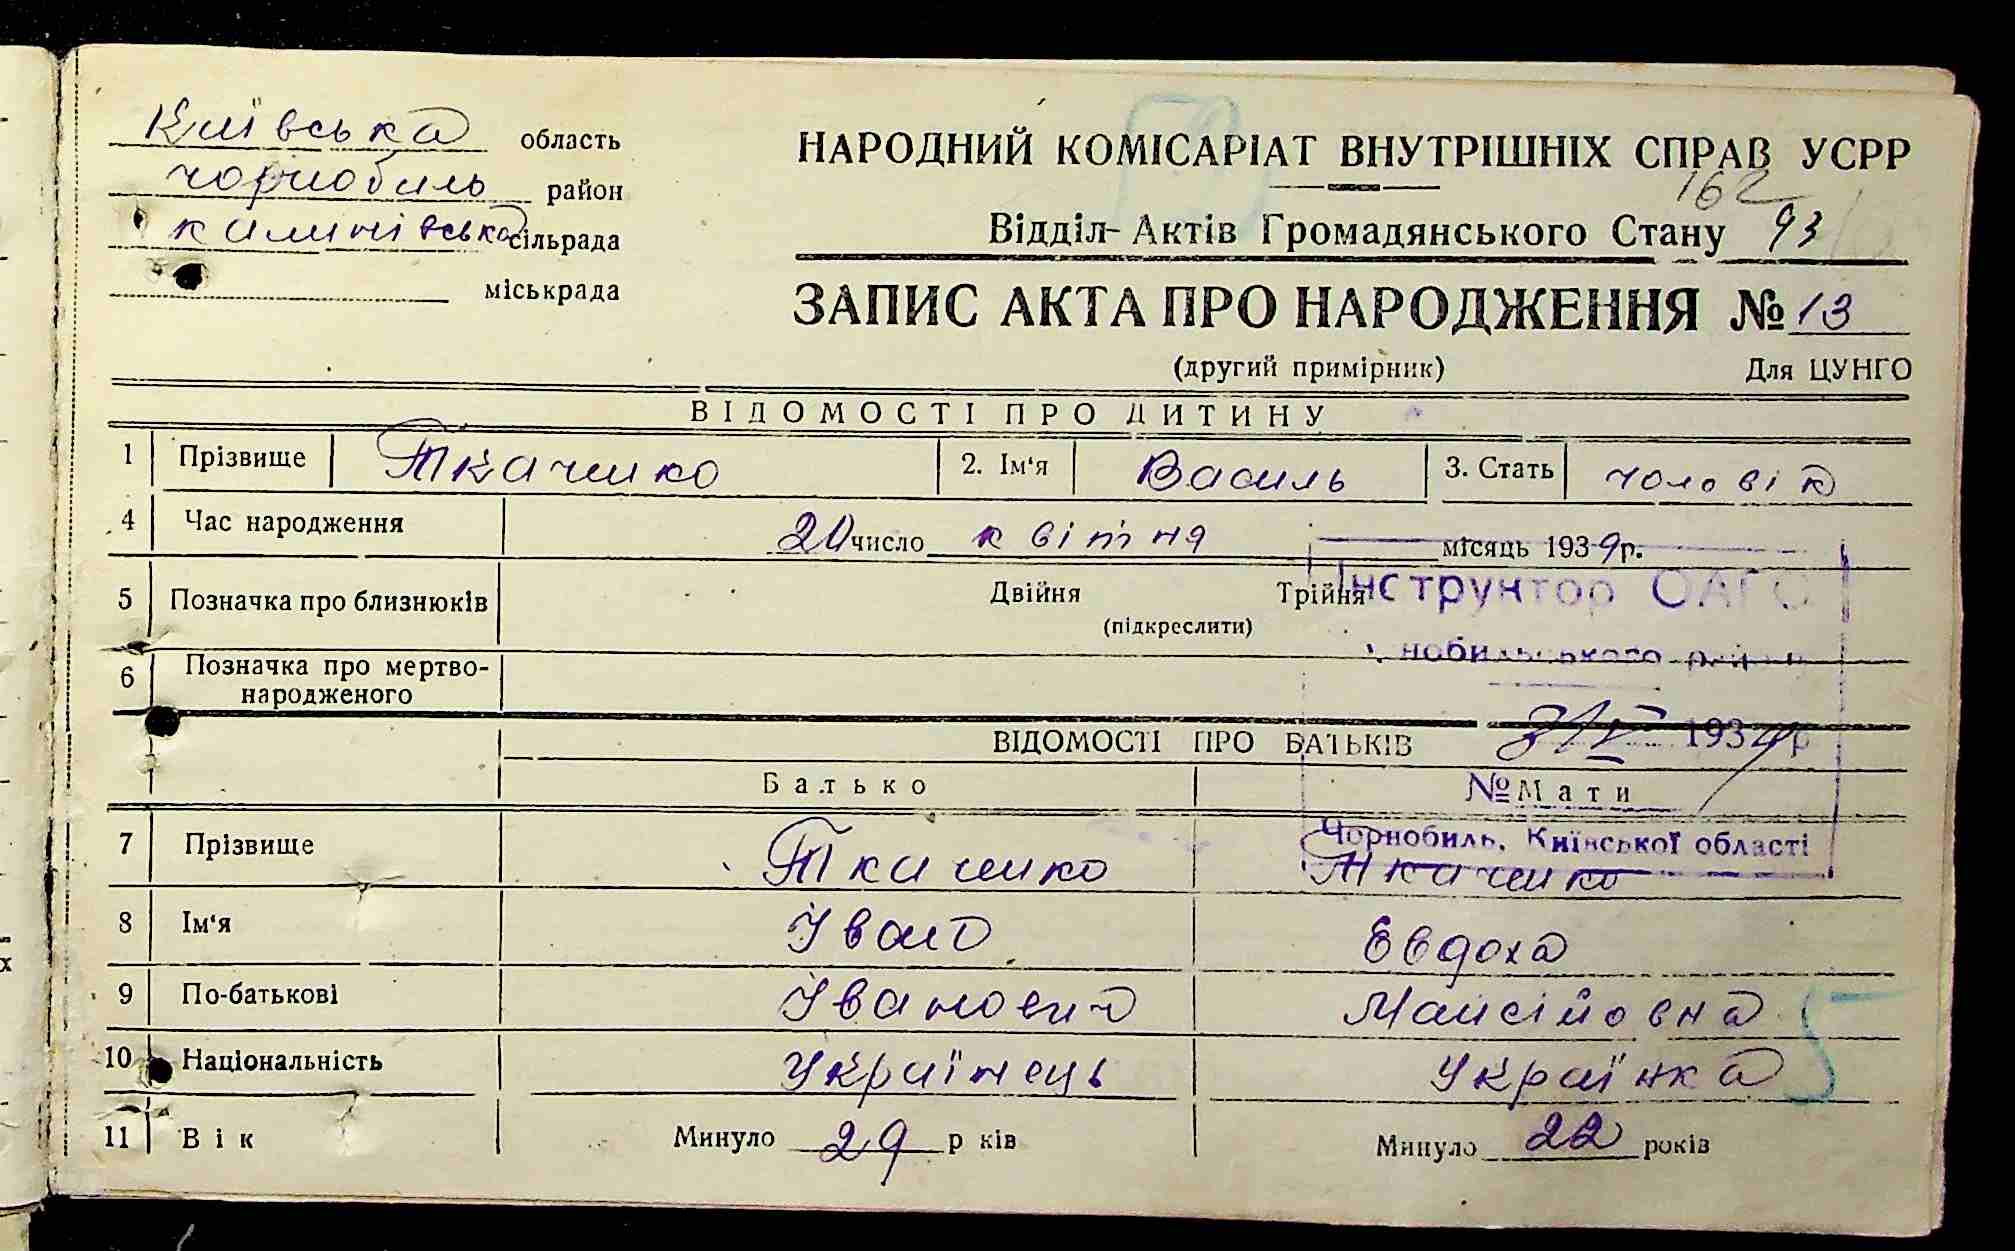 Київська область
Чорнобиль район
Калинівська сільрада
міськрада
НАРОДНИЙ КОМІСАРІАТ ВНУТРІШНІХ СПРАВ УСРР
162
Відділ Актів Громадянського Стану 93
ЗАПИС АКТА ПРО НАРОДЖЕННЯ № 13
(другий примірник) Для ЦУНГО
ВІДОМОСТІ ПРО ДИТИНУ
1 Прізвище Ткаченко 2. Ім'я Василь 3. Стать чоловік
4 Час народження 20 число квітня місяць 1939 р.
5 Позначка про близнюків Двійня Трійня
(підкреслити)
Інструктор ОАГС
нобильського району
6 Позначка про мертво-
народженого
ВІДОМОСТІ ПРО БАТЬКІВ
1939 р
Батько Мати
№
Чорнобиль, Київської області
7 Прізвище Ткаченко Ткаченко
8 Ім'я Іван Евдоха
9 По-батькові Іванович Мойсійовна
10 Національність Українець Українка
5
11 Вік Минуло 29 р ків Минуло 22 років